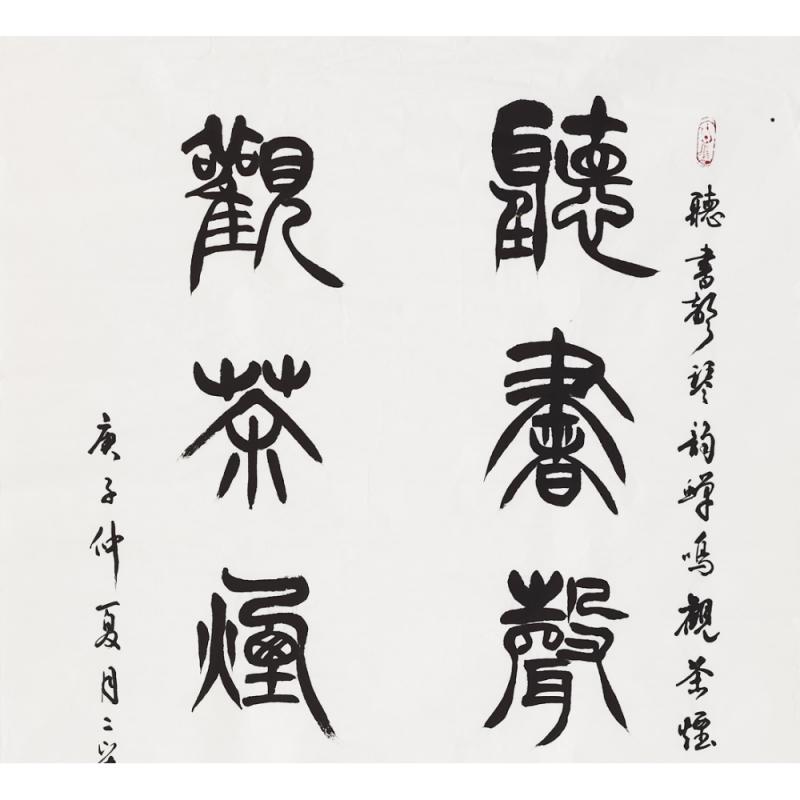 聽書聲琴韻蟬鳴觀茶煙
聽書聲
觀茶煙
庚子仲夏月